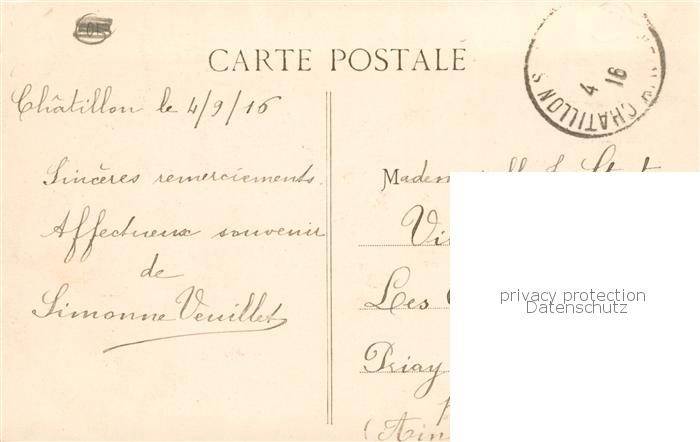 CARTE POSTALE
CHATILLON S
4
16
Châtillon le 4/9/16
Sincères remerciements.
Affectueux souvenir
de
Simonne Veuillet
Les
Priay
(Ain
privacy protection
Datenschutz